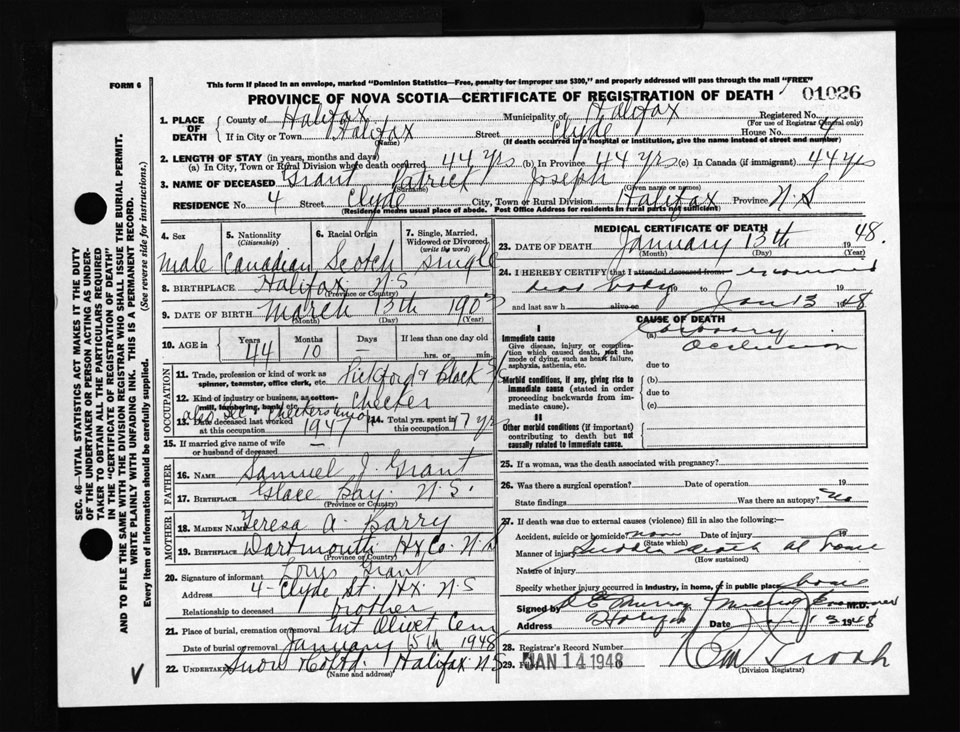 FORM 6
This form if placed in an envelope, marked "Dominion Statistics—Free, penalty for improper use $300," and properly addressed will pass through the mail "FREE"
PROVINCE OF NOVA SCOTIA—CERTIFICATE OF REGISTRATION OF DEATH 01026
1. PLACE OF DEATH County of Halifax Municipality of Halifax Registered No.
(For use of Registrar General only)
If in City or Town Halifax Street Clyde House No. 4
(Name) (If death occurred in a hospital or institution, give the name instead of street and number)
2. LENGTH OF STAY (in years, months and days)
(a) In City, Town or Rural Division where death occurred 44 yrs (b) In Province 44 yrs (c) In Canada (if immigrant) 44 yrs
3. NAME OF DECEASED Grant Patrick Joseph
(Surname) (Given name or names)
RESIDENCE No. 4 Street Clyde City, Town or Rural Division Halifax Province N.S
(Residence means usual place of abode. Post Office Address for residents in rural parts not sufficient)
4. Sex 5. Nationality (Citizenship) 6. Racial Origin 7. Single, Married, Widowed or Divorced (write the word)
male Canadian Scotch single
8. BIRTHPLACE Halifax N.S
(Province or Country)
9. DATE OF BIRTH March 13th 1903
(Month) (Day) (Year)
10. AGE in Years Months Days If less than one day old
44 10 — hrs. or min.
OCCUPATION
11. Trade, profession or kind of work as spinner, teamster, office clerk, etc. Pickford & Black
12. Kind of industry or business, as cotton-mill, lumbering, bank, etc. Checker
also Sec. Checkers union
13. Date deceased last worked at this occupation 1947 14. Total yrs. spent in this occupation 17 yrs
15. If married give name of wife or husband of deceased —
FATHER
16. NAME Samuel J. Grant
17. BIRTHPLACE Glace Bay. N.S.
(Province or Country)
MOTHER
18. MAIDEN NAME Teresa A. Barry
19. BIRTHPLACE Dartmouth Hx Co. N.S
(Province or Country)
20. Signature of informant Louis Grant
Address 4 - Clyde St. Hx. N.S
Relationship to deceased brother
21. Place of burial, cremation or removal Mt Olivet Cem
Date of burial or removal January 15th 1948
22. Undertaker Snow & Co Ltd. Halifax N.S
(Name and address)
MEDICAL CERTIFICATE OF DEATH
23. DATE OF DEATH January 13th 1948.
(Month) (Day) (Year)
24. I HEREBY CERTIFY that I attended deceased from examined
dead body 19 to Jan 13 1948
and last saw h alive on 19
CAUSE OF DEATH
I
Immediate cause (a) Coronary Occlusion
Give disease, injury or complication which caused death, not the mode of dying, such as heart failure, asphyxia, asthenia, etc.
due to
Morbid conditions, if any, giving rise to immediate cause (stated in order proceeding backwards from immediate cause). (b)
due to
(c)
II
Other morbid conditions (if important) contributing to death but not causally related to immediate cause.
25. If a woman, was the death associated with pregnancy?
26. Was there a surgical operation? Date of operation 19
State findings Was there an autopsy? No
27. If death was due to external causes (violence) fill in also the following:—
Accident, suicide or homicide? none Date of injury 19
(State which)
Manner of injury Sudden death at home
(How sustained)
Nature of injury
Specify whether injury occurred in industry, in home, or in public place home
Signed by Murray M.D.
Address Halifax Date Jan 13 1948
28. Registrar's Record Number
29. Filed JAN 14 1948
(Division Registrar)
SEC. 46—VITAL STATISTICS ACT MAKES IT THE DUTY
OF THE UNDERTAKER OR PERSON ACTING AS UNDER-
TAKER TO OBTAIN ALL THE PARTICULARS REQUIRED
IN THE "CERTIFICATE OF REGISTRATION OF DEATH"
AND TO FILE THE SAME WITH THE DIVISION REGISTRAR WHO SHALL ISSUE THE BURIAL PERMIT.
WRITE PLAINLY WITH UNFADING INK. THIS IS A PERMANENT RECORD.
Every item of information should be carefully supplied. (See reverse side for instructions.)